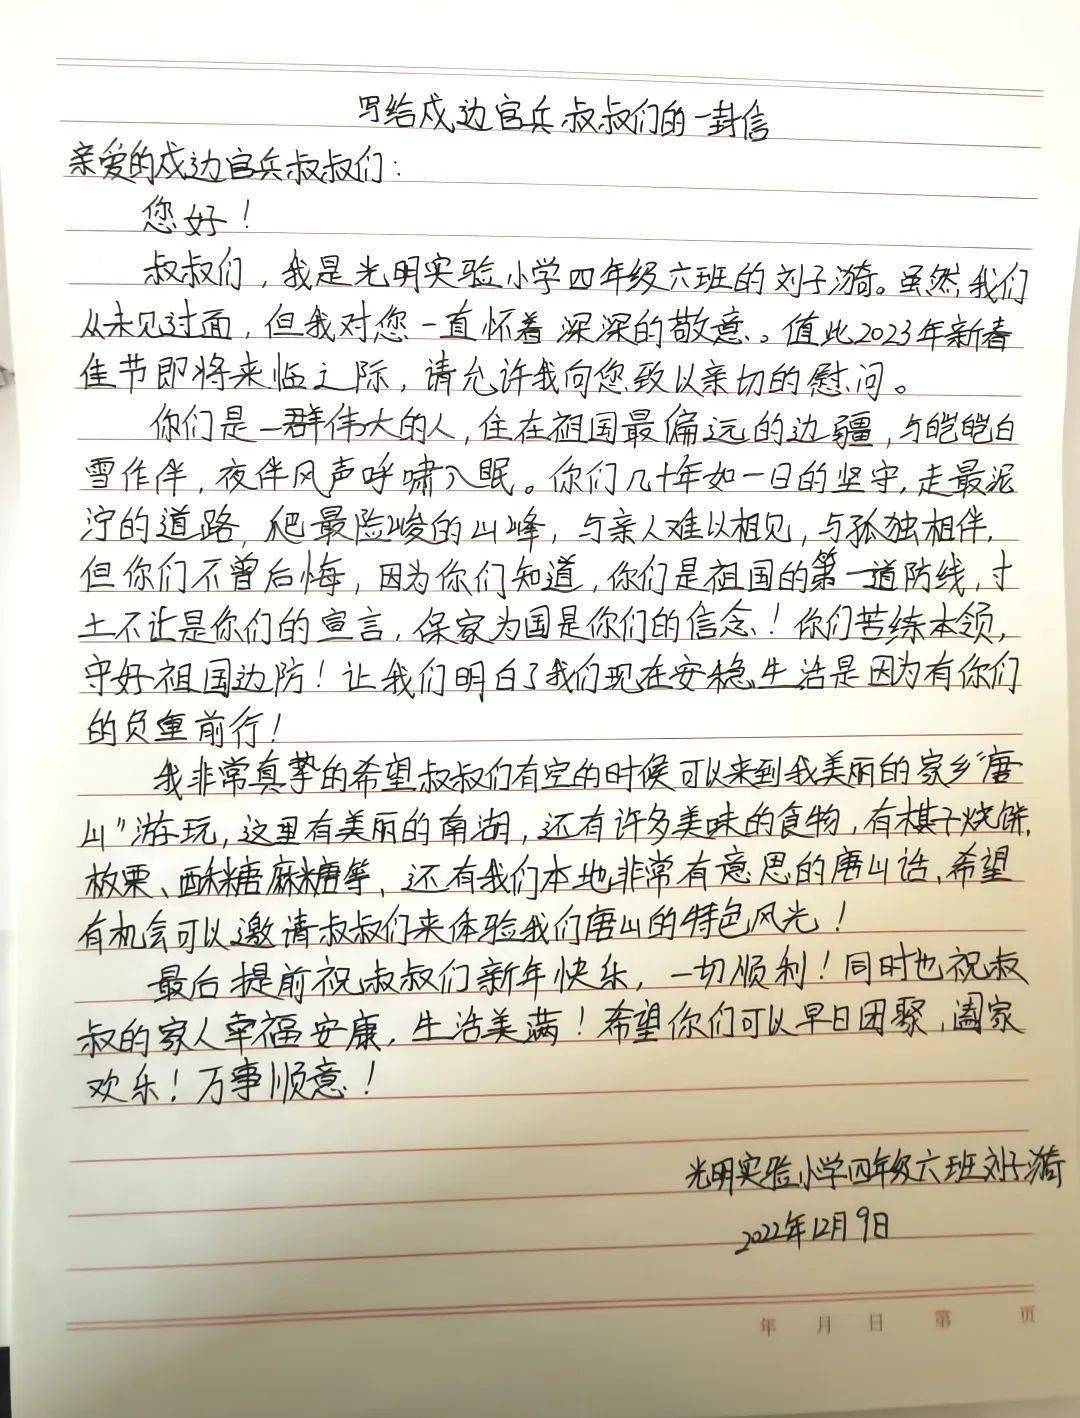 写给戍边官兵叔叔们的一封信
亲爱的戍边官兵叔叔们:
您好!
叔叔们,我是光明实验小学四年级六班的刘子漪。虽然,我们
从未见过面,但我对您一直怀着深深的敬意。值此2023年新春
佳节即将来临之际,请允许我向您致以亲切的慰问。
你们是一群伟大的人,住在祖国最偏远的边疆,与皑皑白
雪作伴,夜伴风声呼啸入眠。你们几十年如一日的坚守,走最泥
泞的道路,爬最险峻的山峰,与亲人难以相见,与孤独相伴,
但你们不曾后悔,因为你们知道,你们是祖国的第一道防线,寸
土不让是你们的宣言,保家为国是你们的信念!你们苦练本领,
守好祖国边防!让我们明白了我们现在安稳生活是因为有你们
的负重前行!
我非常真挚的希望叔叔们有空的时候可以来到我美丽的家乡“唐
山”游玩,这里有美丽的南湖,还有许多美味的食物,有棋子烧饼,
板栗、酥糖麻糖等,还有我们本地非常有意思的唐山话,希望
有机会可以邀请叔叔们来体验我们唐山的特色风光!
最后提前祝叔叔们新年快乐,一切顺利!同时也祝叔
叔的家人幸福安康,生活美满!希望你们可以早日团聚,阖家
欢乐!万事顺意!
光明实验小学四年级六班刘子漪
2022年12月9日
年 月 日 第 页